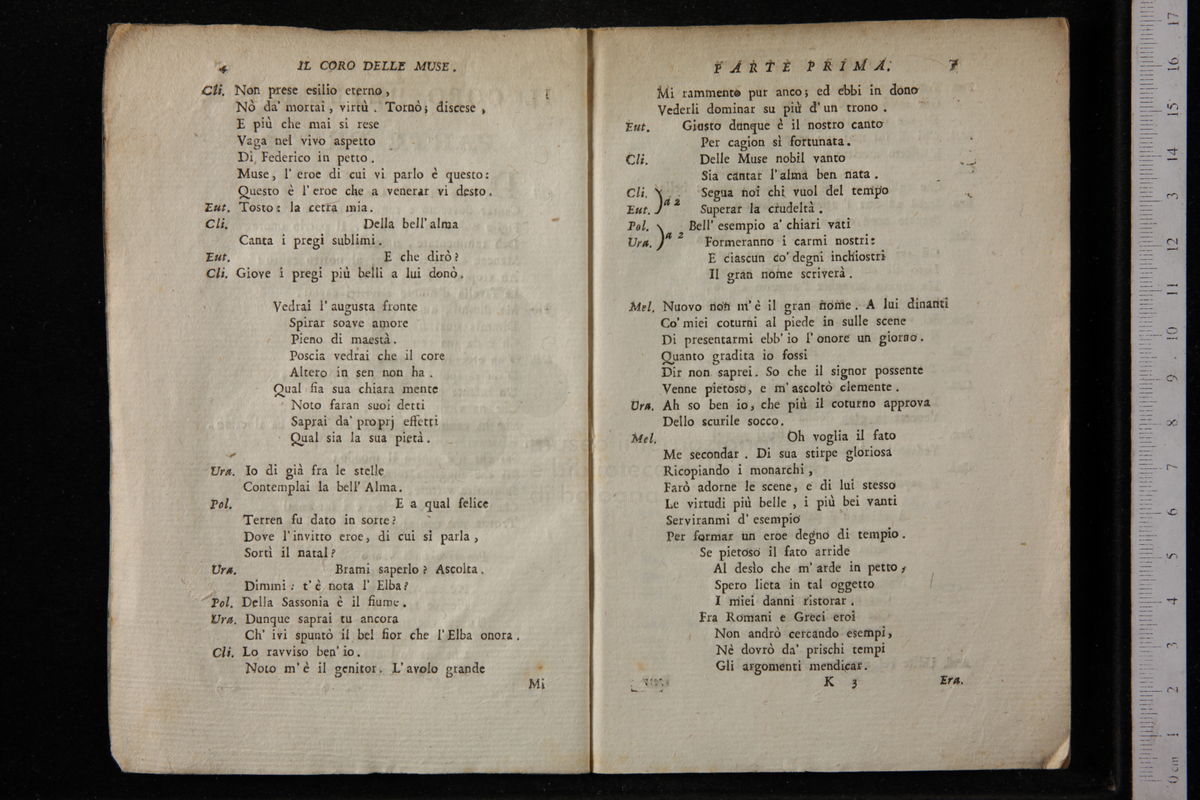 4 IL CORO DELLE MUSE.
Cli. Non prese esilio eterno,
Nò da' mortai, virtù. Tornò; discese,
E più che mai si rese
Vaga nel vivo aspetto
Di Federico in petto.
Muse, l' eroe di cui vi parlo è questo:
Questo è l' eroe che a venerar vi desto.
Eut. Tosto: la cetra mia.
Cli. Della bell' alma
Canta i pregi sublimi.
Eut. E che dirò?
Cli. Giove i pregi più belli a lui donò.
Vedrai l' augusta fronte
Spirar soave amore
Pieno di maestà.
Poscia vedrai che il core
Altero in sen non ha.
Qual fia sua chiara mente
Noto faran suoi detti
Saprai da' proprj effetti
Qual sia la sua pietà.
Ura. Io di già fra le stelle
Contemplai la bell' Alma.
Pol. E a qual felice
Terren fu dato in sorte?
Dove l' invitto eroe, di cui si parla,
Sortì il natal?
Ura. Brami saperlo? Ascolta.
Dimmi: t' è nota l' Elba?
Pol. Della Sassonia è il fiume.
Ura. Dunque saprai tu ancora
Ch' ivi spuntò il bel fior che l' Elba onora.
Cli. Lo ravviso ben' io.
Noto m' è il genitor. L' avolo grande
Mi
PARTE PRIMA. 7
Mi rammento pur anco; ed ebbi in dono
Vederli dominar su più d' un trono.
Eut. Giusto dunque è il nostro canto
Per cagion sì fortunata.
Cli. Delle Muse nobil vanto
Sia cantar l' alma ben nata.
Cli. Segua noi chi vuol del tempo
Eut. a 2 Superar la crudeltà.
Pol. Bell' esempio a' chiari vati
Ura. a 2 Formeranno i carmi nostri:
E ciascun co' degni inchiostri
Il gran nome scriverà.
Mel. Nuovo non m' è il gran nome. A lui dinanti
Co' miei coturni al piede in sulle scene
Di presentarmi ebb' io l' onore un giorno.
Quanto gradita io fossi
Dir non saprei. So che il signor possente
Venne pietoso, e m' ascoltò clemente.
Ura. Ah so ben io, che più il coturno approva
Dello scurile socco.
Mel. Oh voglia il fato
Me secondar. Di sua stirpe gloriosa
Ricopiando i monarchi,
Farò adorne le scene, e di lui stesso
Le virtudi più belle, i più bei vanti
Serviranmi d' esempio
Per formar un eroe degno di tempio.
Se pietoso il fato arride
Al desìo che m' arde in petto,
Spero lieta in tal oggetto
I miei danni ristorar.
Fra Romani e Greci eroi
Non andrò cercando esempi,
Nè dovrò da' prischi tempi
Gli argomenti mendicar.
K 3 Era.
0 cm 1 2 3 4 5 6 7 8 9 10 11 12 13 14 15 16 17